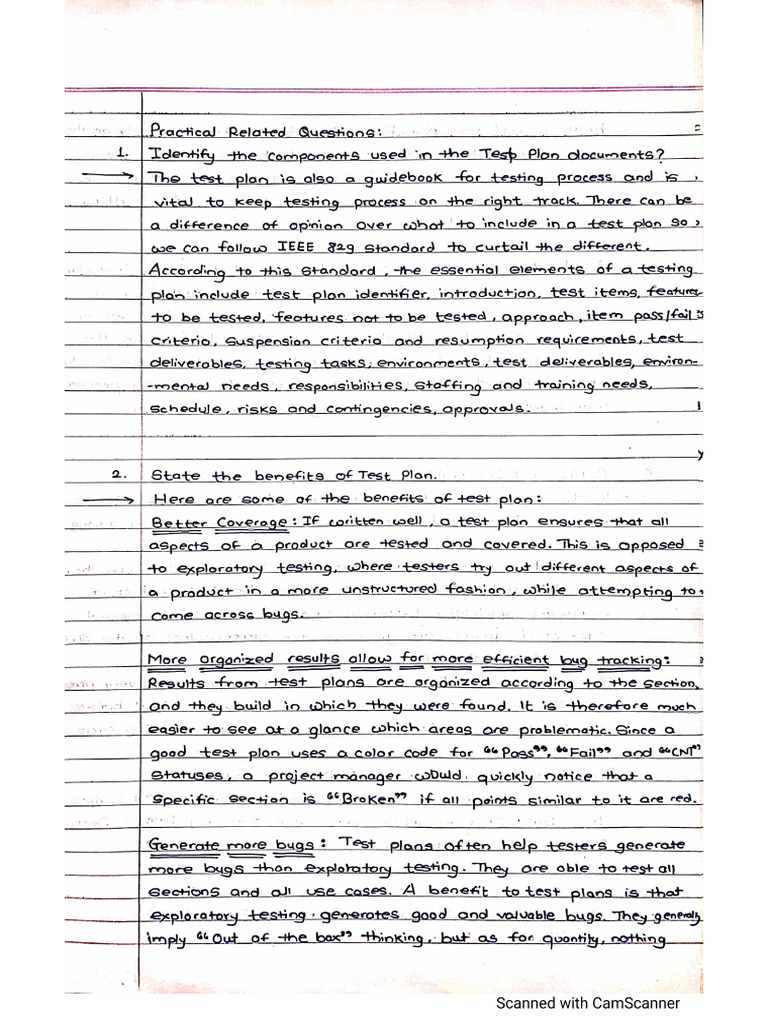 Practical Related Questions:
1. Identify the components used in the Test Plan documents?
→ The test plan is also a guidebook for testing process and is
vital to keep testing process on the right track. There can be
a difference of opinion over what to include in a test plan so
we can follow IEEE 829 standard to curtail the different.
According to this standard, the essential elements of a testing
plan include test plan identifier, introduction, test items, features
to be tested, features not to be tested, approach, item pass/fail
criterio, suspension criterio and resumption requirements, test
deliverables, testing tasks, environments, test deliverables, environ-
-mental needs, responsibilities, staffing and training needs,
schedule, risks and contingencies, approvals.
2. State the benefits of Test Plan.
→ Here are some of the benefits of test plan:
Better Coverage: If written well, a test plan ensures that all
aspects of a product are tested and covered. This is opposed
to exploratory testing, where testers try out different aspects of
a product in a more unstructured fashion, while attempting to
come across bugs.
More organized results allow for more efficient bug tracking:
Results from test plans are organized according to the section,
and they build in which they were found. It is therefore much
easier to see at a glance which areas are problematic. Since a
good test plan uses a color code for "Pass", "Fail" and "CNT"
statuses, a project manager would quickly notice that a
specific section is "Broken" if all points similar to it are red.
Generate more bugs: Test plans often help testers generate
more bugs than exploratory testing. They are able to test all
sections and all use cases. A benefit to test plans is that
exploratory testing generates good and valuable bugs. They generally
imply "Out of the box" thinking, but as for quantity, nothing
Scanned with CamScanner